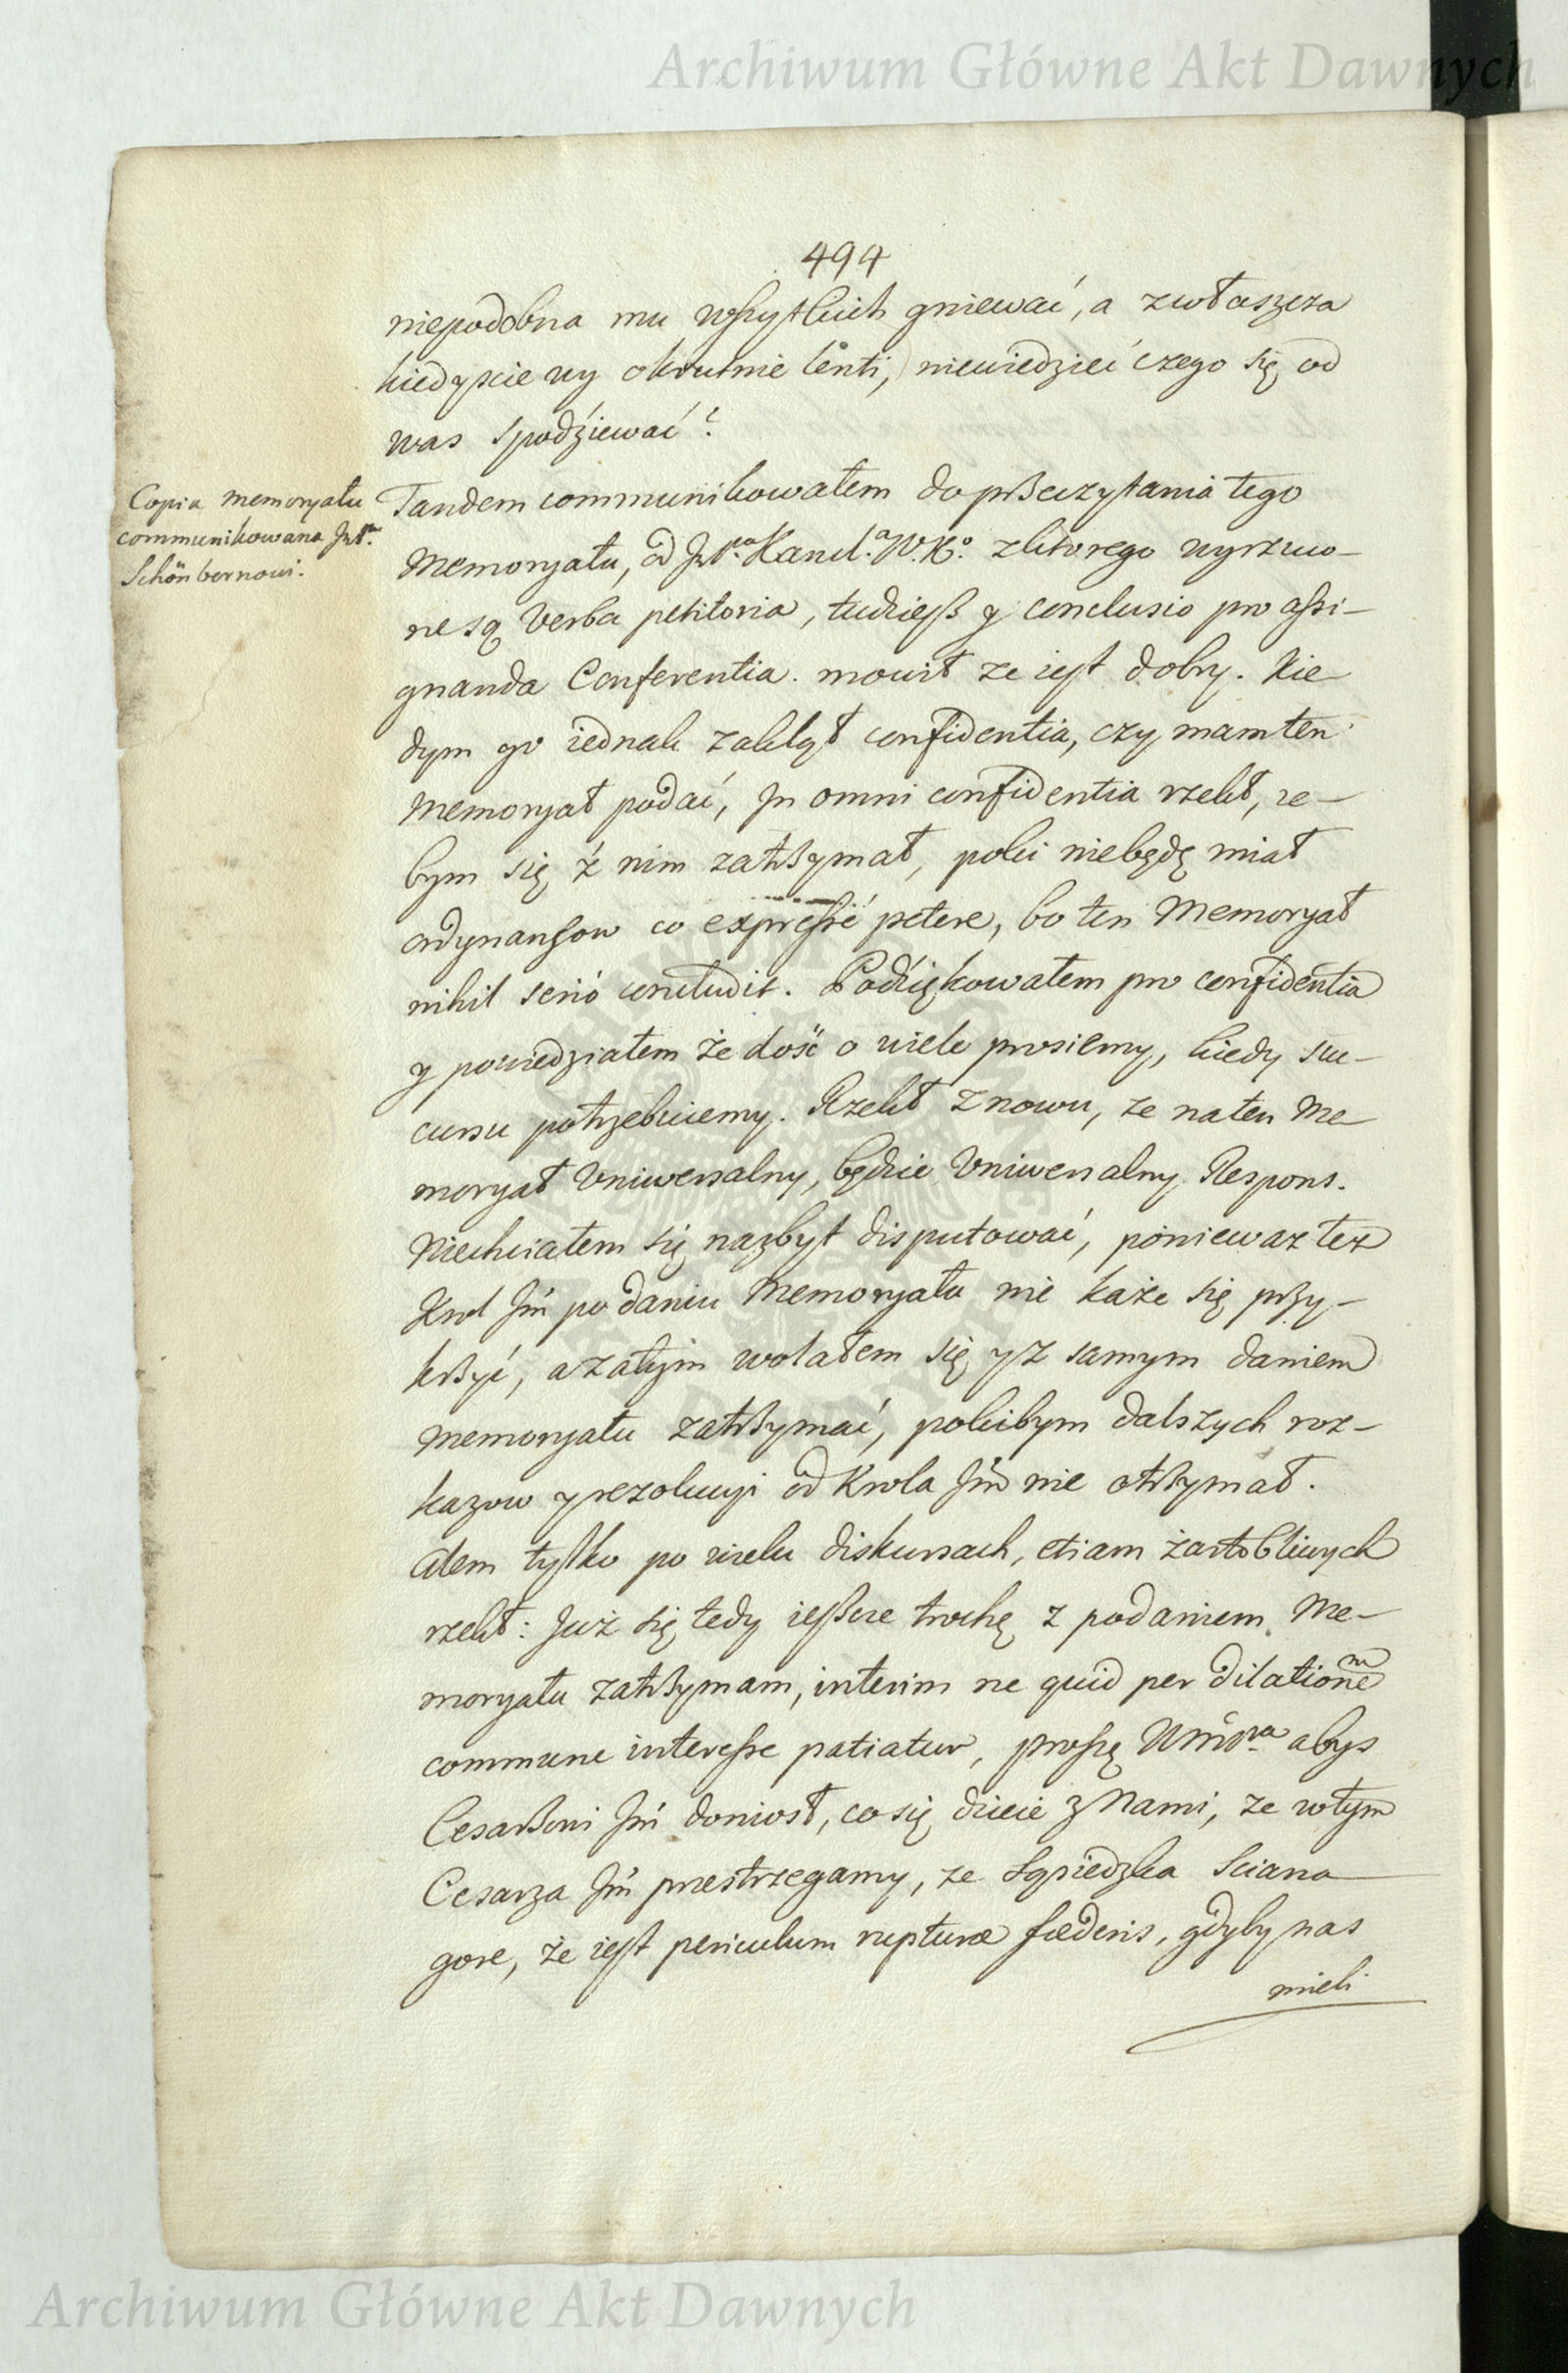 Archiwum Główne Akt Dawnych
494
niepodobna mu wszytkich gniewać, a zwłaszcza
kiedyście wy okrutnie lenti, niewiedzieć czego się od
was spodziewać?
Copia memoryału
communikowana JMP.
Schönbernowi.
Tandem communikowałem do przeczytania tego
Memoryału, od JMPa Kancl.a W.Ko. z ktorego wyrzuco-
ne są Verba petitoria, tudziesz y conclusio pro assi-
gnanda Conferentia. mowił ze iest dobry. Kie-
dym go iednak zaklął confidentia, czy mam ten
Memoryał podać, Jn omni confidentia rzekł, ze-
bym się z nim zatrzymał, poki niebędę miał
ordynansow co expressé petere, bo ten Memoryał
nihil serió concludit. Podziękowałem pro confidentia
y powiedziałem że dość o wiele prosiemy, kiedy suc-
cursu potrzebuiemy. Rzekł znowu, ze na ten Me-
moryał Vniwersalny, będzie Vniwersalny Respons.
Niechciałem się nazbyt disputować, poniewaz tez
Krol Jm̃ po daniu Memoryału nie każe się przy-
krzyć, a zatym wolałem się y z samym daniem
Memoryału zatrzymać, pokibym dalszych roz-
kazow y rezolucyi od Krola Jm̃ nie otrzymał.
Alem tylko po wielu diskursach, etiam żartobliwych
rzekł: Już się tedy ieszcze trochę z podaniem Me-
moryału zatrzymam, interim ne quid per dilationem
commune interesse patiatur, proszę WmPa abys
Cesarzowi Jm̃ doniosł, co się dzieie z Nami, ze w tym
Cesarza Jm̃ przestrzegamy, ze Sąsiedzka Sciana
gore, że iest periculum rupturæ fœderis, gdyby nas
mieli
Archiwum Główne Akt Dawnych